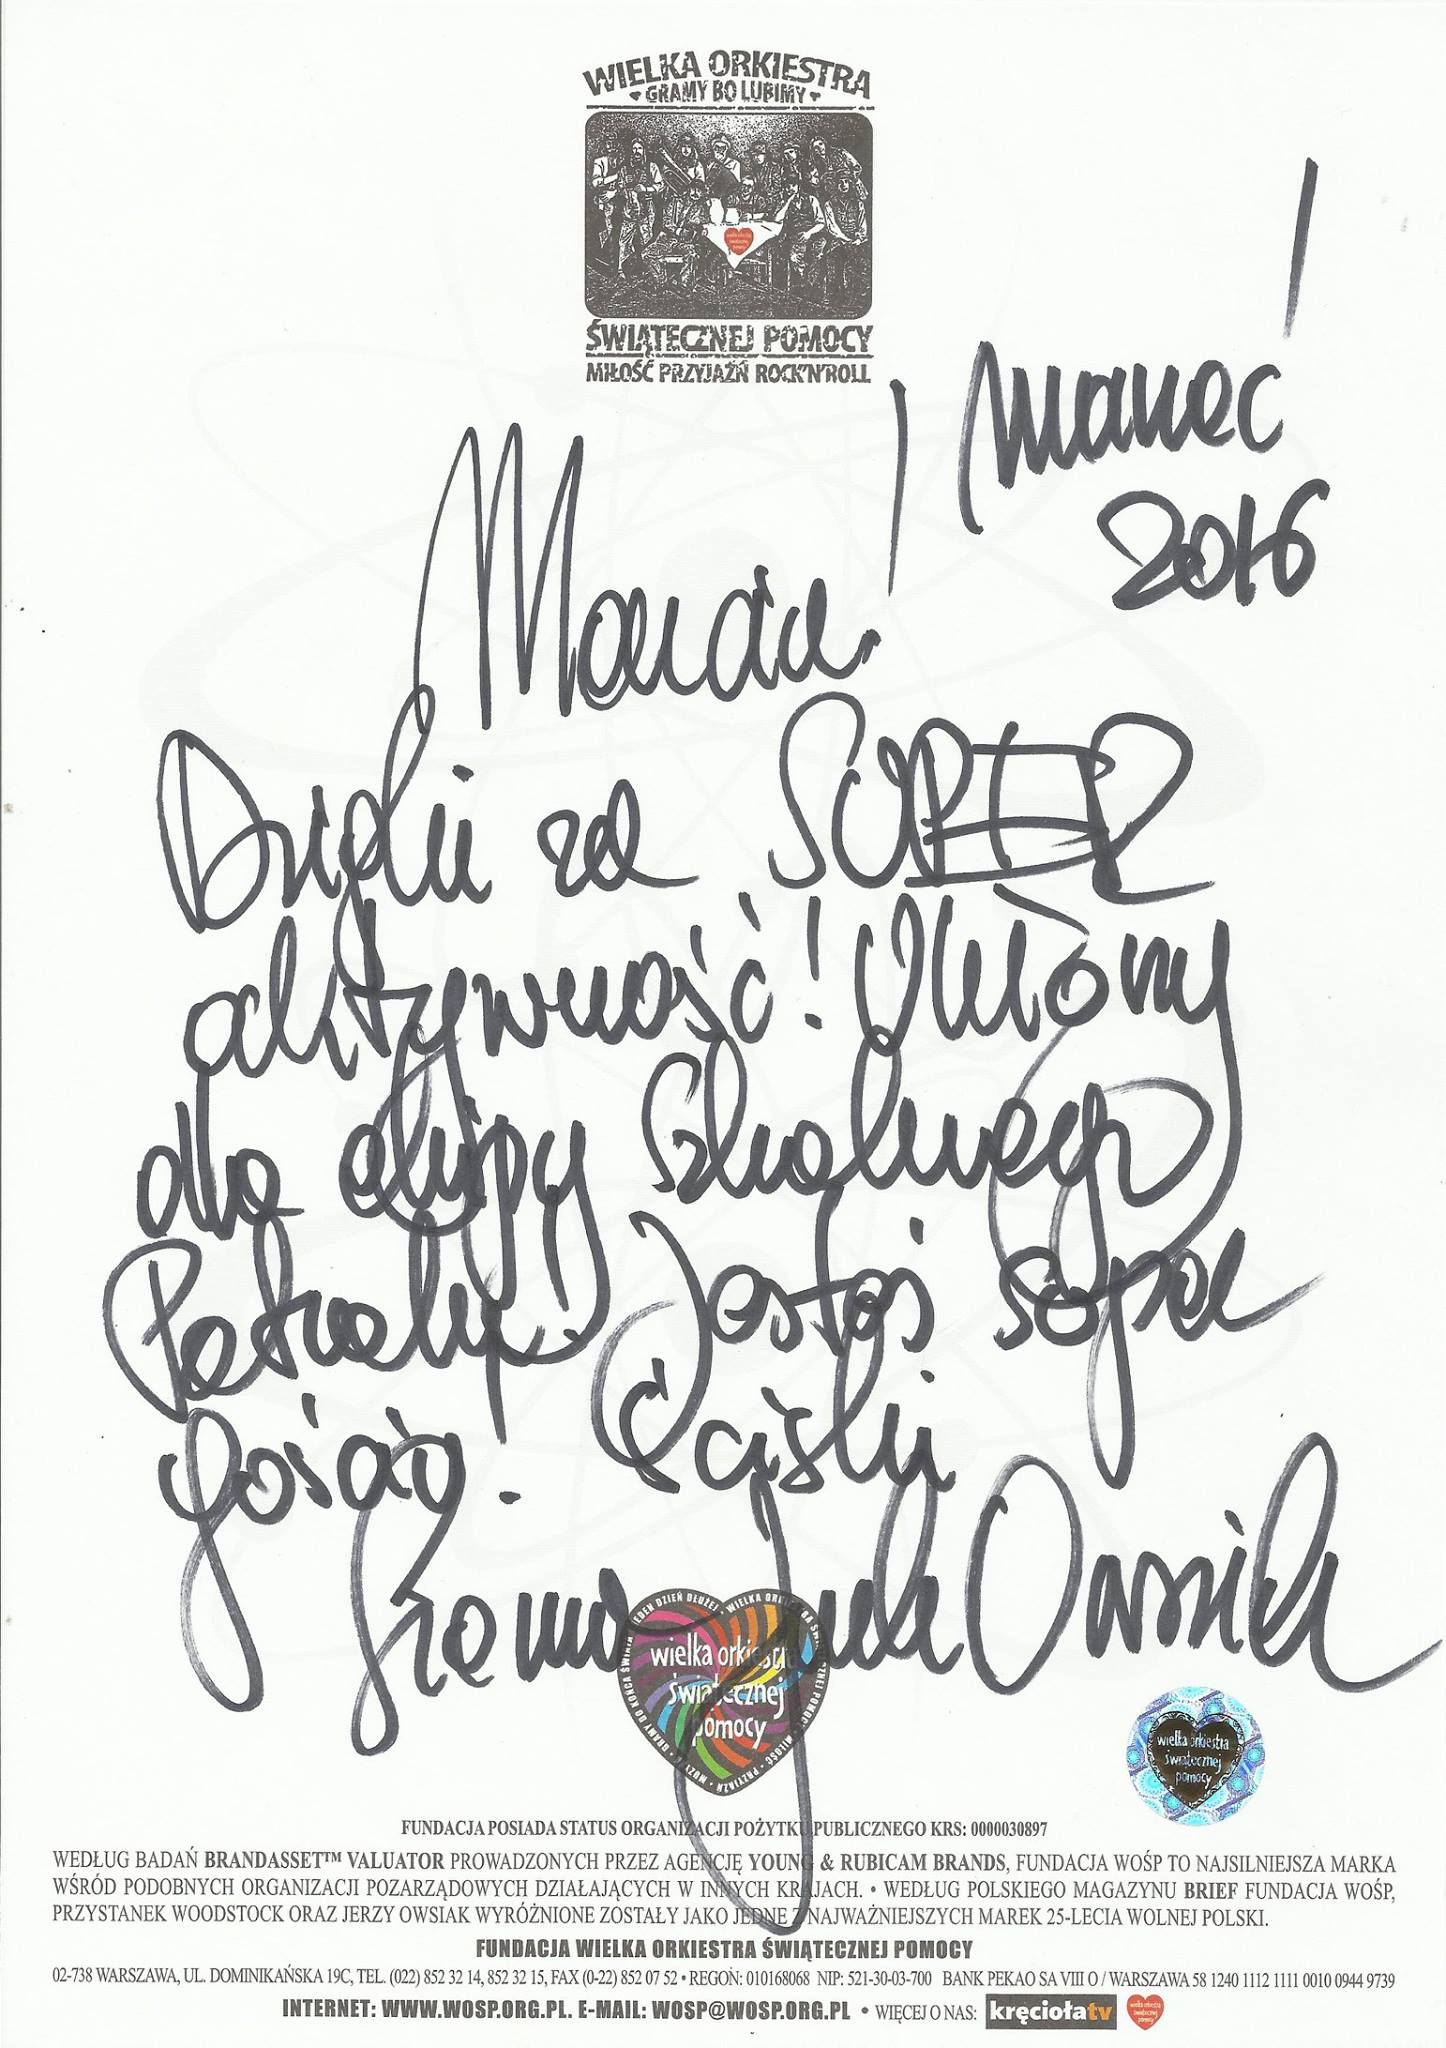 WIELKA ORKIESTRA
GRAMY BO LUBIMY
wielka orkiestra
świątecznej
pomocy
ŚWIĄTECZNEJ POMOCY
MIŁOŚĆ PRZYJAŹŃ ROCK'N'ROLL
marzec!
2016
Marcin!
Dzięki za SUPER
aktywność! Ukłony
dla ekipy Szkolnego
Patrolu. Jesteś super
gościo! Ściski
Siema Jurek Owsiak
JEDEN DZIEŃ DŁUŻEJ • WIELKA ORKIESTRA ŚWIĄTECZNEJ POMOCY • MIŁOŚĆ • PRZYJAŹŃ • MUZYKA • GRAMY DO KOŃCA ŚWIATA
wielka orkiestra
świątecznej
pomocy
wielka orkiestra
świątecznej
pomocy
FUNDACJA POSIADA STATUS ORGANIZACJI POŻYTKU PUBLICZNEGO KRS: 0000030897
WEDŁUG BADAŃ BRANDASSET™ VALUATOR PROWADZONYCH PRZEZ AGENCJĘ YOUNG & RUBICAM BRANDS, FUNDACJA WOŚP TO NAJSILNIEJSZA MARKA
WŚRÓD PODOBNYCH ORGANIZACJI POZARZĄDOWYCH DZIAŁAJĄCYCH W INNYCH KRAJACH. • WEDŁUG POLSKIEGO MAGAZYNU BRIEF FUNDACJA WOŚP,
PRZYSTANEK WOODSTOCK ORAZ JERZY OWSIAK WYRÓŻNIONE ZOSTAŁY JAKO JEDNE Z NAJWAŻNIEJSZYCH MAREK 25-LECIA WOLNEJ POLSKI.
FUNDACJA WIELKA ORKIESTRA ŚWIĄTECZNEJ POMOCY
02-738 WARSZAWA, UL. DOMINIKAŃSKA 19C, TEL. (022) 852 32 14, 852 32 15, FAX (0-22) 852 07 52 • REGON: 010168068 NIP: 521-30-03-700 BANK PEKAO SA VIII O / WARSZAWA 58 1240 1112 1111 0010 0944 9739
INTERNET: WWW.WOSP.ORG.PL. E-MAIL: WOSP@WOSP.ORG.PL • WIĘCEJ O NAS: kręciołatv
wielka orkiestra
świątecznej
pomocy